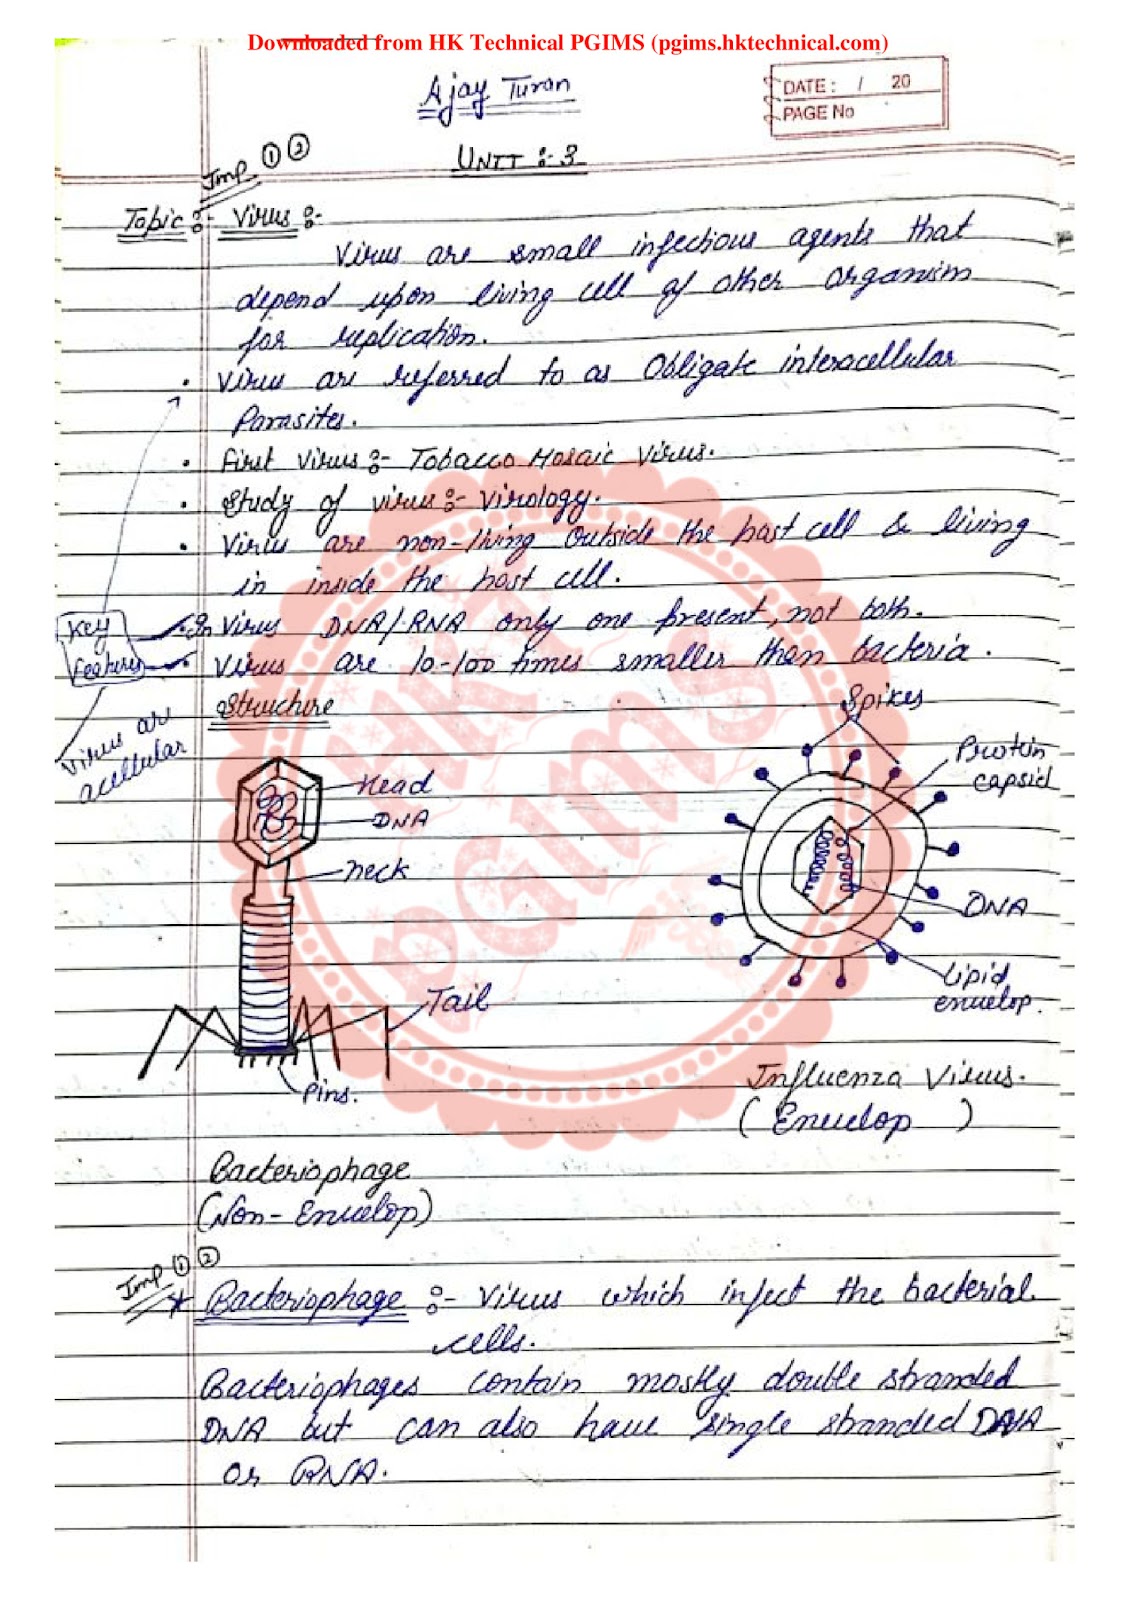 Downloaded from HK Technical PGIMS (pgims.hktechnical.com)
Ajay Turan
DATE : / 20
PAGE No
UNIT :- 3
Imp ① ②
Topic :- Virus :-
Virus are small infectious agents that
depend upon living cell of other organism
for replication.
• Virus are referred to as Obligate interacellular
Parasites.
• First Virus :- Tobacco Mosaic Virus.
• Study of virus :- Virology.
• Virus are non-living outside the host cell & living
in inside the host cell.
Key
Features
• In Virus DNA/RNA only one present, not both.
• Virus are 10-100 times smaller than bacteria.
Virus are
acellular
Structure
Head
DNA
Neck
Tail
Pins.
Bacteriophage
(Non-Envelop)
Spikes
Protein
capsid
DNA
Lipid
envelop.
Influenza Virus.
(Envelop )
HK
PGIMS
Imp ① ②
* Bacteriophage :- Virus which infect the bacterial
cells.
Bacteriophages contain mostly double stranded
DNA but can also have single stranded DNA
or RNA.